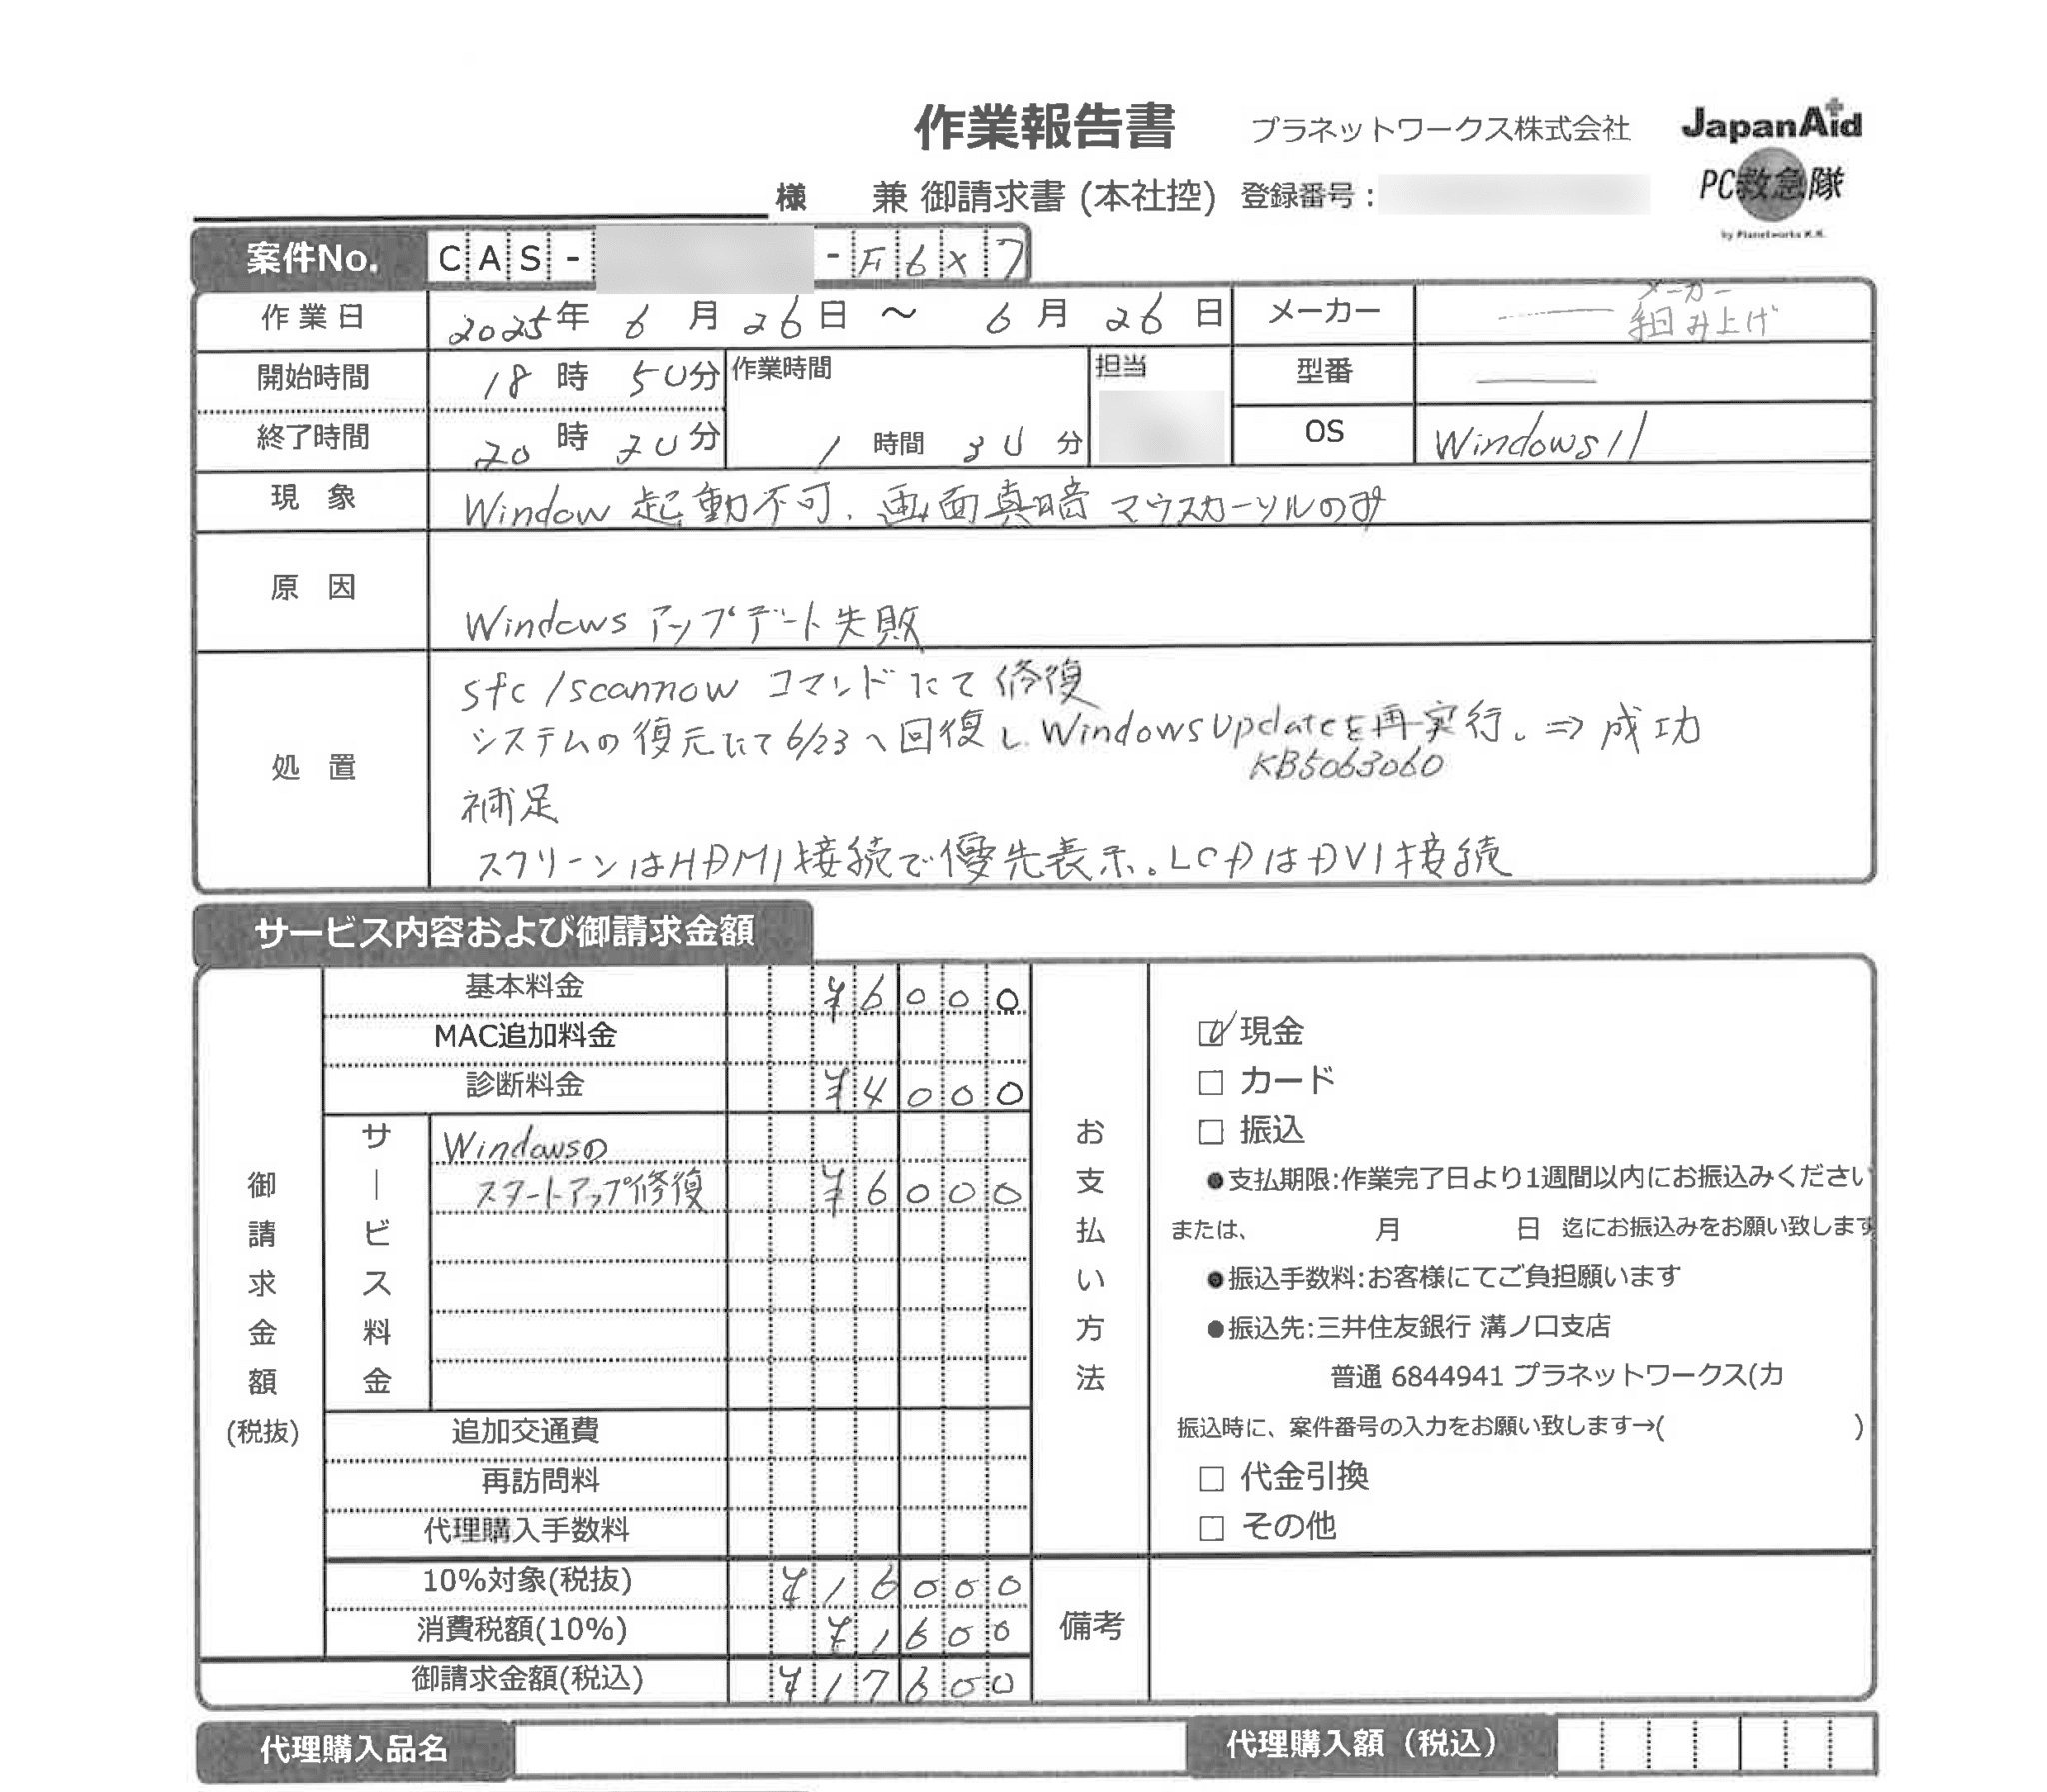 作業報告書 プラネットワークス株式会社 JapanAid
様 兼 御請求書 (本社控) 登録番号: PC救急隊
by Planetworks K.K.
案件No. CAS- -F6X7
作業日 2025年 6月 26日 ～ 6月 26日 メーカー メーカー
組み上げ
開始時間 18時 50分 作業時間 担当 型番
終了時間 20時 20分 1時間 30分 OS Windows11
現象 Window 起動不可. 画面真暗 マウスカーソルのみ
原因
Windows アップデート失敗
sfc /scannow コマンドにて修復
システムの復元にて6/23へ回復し WindowsUpdateを再実行. ⇒ 成功
処置 KB5063060
補足
スクリーンはHDMI接続で優先表示。LCDはDVI接続
サービス内容および御請求金額
基本料金 ¥6000
MAC追加料金
診断料金 ¥4000
御請求金額(税抜)
サービス料金
Windowsの
スタートアップ修復 ¥6000
追加交通費
再訪問料
代理購入手数料
10%対象(税抜) ¥16000
消費税額(10%) ¥1600
御請求金額(税込) ¥17600
お支払い方法
☑ 現金
□ カード
□ 振込
●支払期限:作業完了日より1週間以内にお振込みください
または、 月 日 迄にお振込みをお願い致します
●振込手数料:お客様にてご負担願います
●振込先:三井住友銀行 溝ノ口支店
普通 6844941 プラネットワークス(カ
振込時に、案件番号の入力をお願い致します→( )
□ 代金引換
□ その他
備考
代理購入品名 代理購入額（税込）